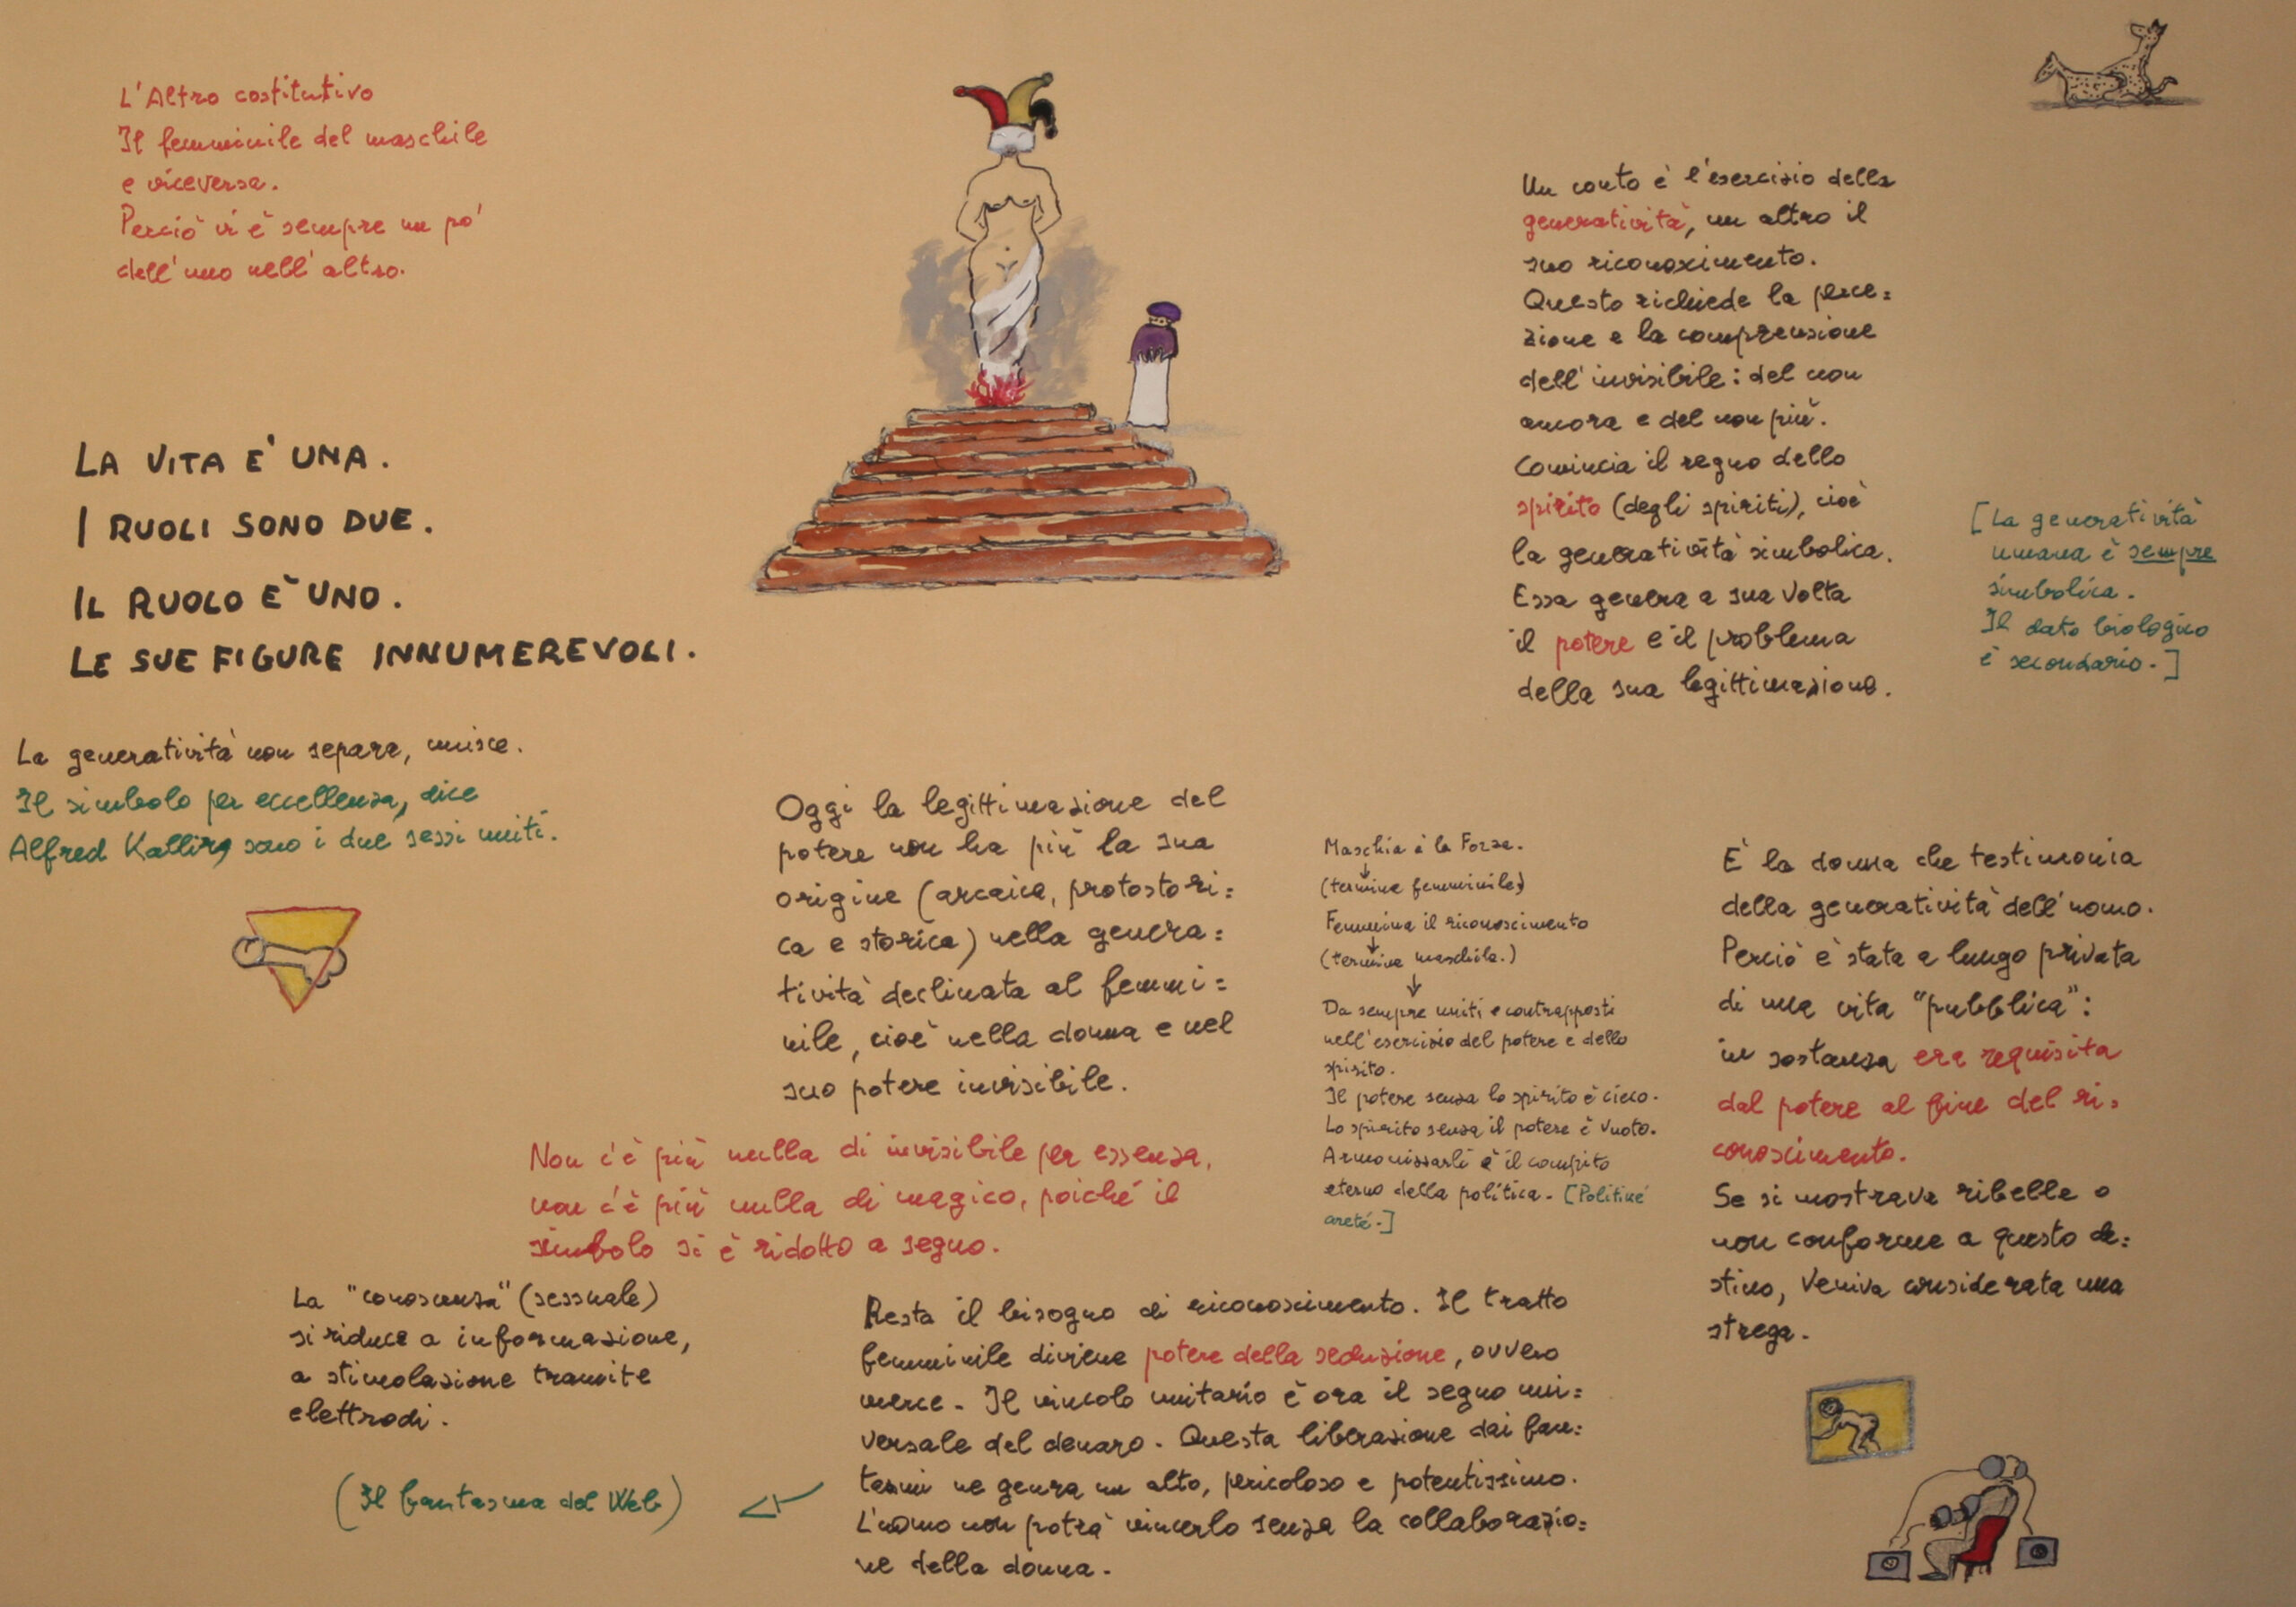 L'Altro costitutivo
Il femminile del maschile
e viceversa.
Perciò vi è sempre un po'
dell'uno nell'altro.
LA VITA E' UNA.
I RUOLI SONO DUE.
IL RUOLO È UNO.
LE SUE FIGURE INNUMEREVOLI.
La generatività non separa, unisce.
Il simbolo per eccellenza, dice
Alfred Kallir, sono i due sessi uniti.
Un conto è l'esercizio della
generatività, un altro il
suo riconoscimento.
Questo richiede la perce=
zione e la comprensione
dell'invisibile: del non
ancora e del non più.
Comincia il regno dello
spirito (degli spiriti), cioè
la generatività simbolica.
Essa genera a sua volta
il potere e il problema
della sua legittimazione.
[La generatività
umana è sempre
simbolica.
Il dato biologico
è secondario.]
Oggi la legittimazione del
potere non ha più la sua
origine (arcaica, protostori=
ca e storica) nella genera=
tività declinata al femmi=
nile, cioè nella donna e nel
suo potere invisibile.
Non c'è più nulla di invisibile per essenza,
non c'è più nulla di magico, poiché il
simbolo si è ridotto a segno.
La "conoscenza" (sessuale)
si riduce a informazione,
a stimolazione tramite
elettrodi.
(Il fantasma del Web)
Maschia è la Forza.
(termine femminile)
Femmina il riconoscimento
(termine maschile.)
Da sempre uniti e contrapposti
nell'esercizio del potere e dello
spirito.
Il potere senza lo spirito è cieco.
Lo spirito senza il potere è vuoto.
Armonizzarli è il compito
eterno della politica. [Politiké
areté.]
Resta il bisogno di riconoscimento. Il tratto
femminile diviene potere della seduzione, ovvero
merce. Il vincolo unitario è ora il segno uni=
versale del denaro. Questa liberazione dai fan=
tasmi ne genera un alto, pericoloso e potentissimo.
L'uomo non potrà vincerlo senza la collaborazio=
ne della donna.
È la donna che testimonia
della generatività dell'uomo.
Perciò è stata a lungo privata
di una vita "pubblica":
in sostanza era requisita
dal potere al fine del ri=
conoscimento.
Se si mostrava ribelle o
non conforme a questo de=
stino, veniva considerata una
strega.